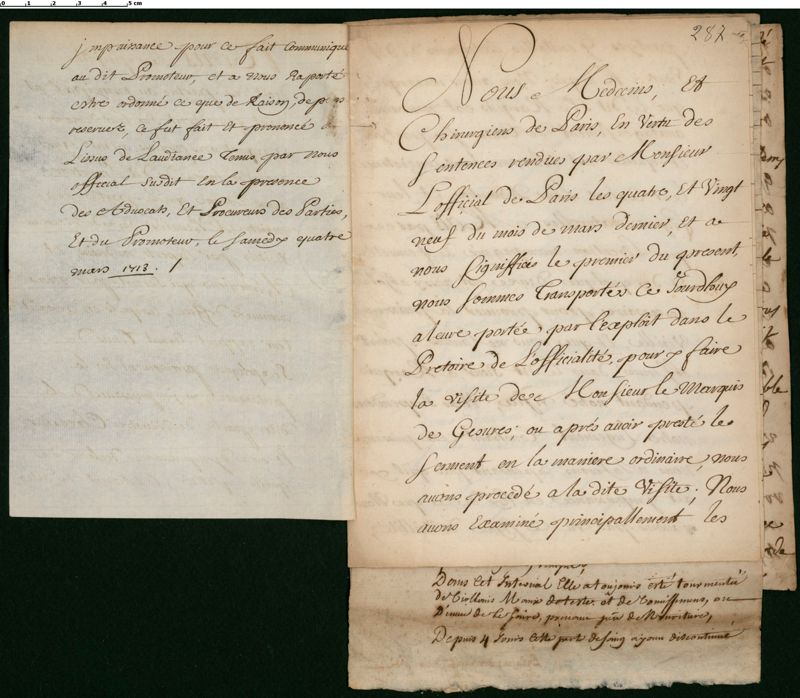 jmpuissance pour ce fait Communiqué
au dit Promoteur, et a nous Raporté
estre ordonné ce que de Raison, depens
reservez, ce fut fait Et prononcé a
Lissue de Laudiance Tenue par nous
official susdit En la presence
des Advocats, Et Procureurs des Parties,
Et du Promoteur, le samedy quatre
mars 1713. /
287
Nous Medecins, Et
Chirurgiens de Paris, En Vertu des
Sentences rendues par Monsieur
L'official de Paris les quatre, Et Vingt
neuf du mois de mars dernier, et a
nous signiffiés le premier du present,
nous sommes Transportés ce Jourdhuy
a leure portée par l'exploit dans le
Pretoire de L'officialité, pour y faire
la Visite de Monsieur le Marquis
de Gesvres; ou aprés avoir presté le
serment en la maniere ordinaire, nous
avons procedé a la dite Visite, Nous
avons Examiné principallement les
Dans Cet Interval Elle a toujours esté tourmentée
de Viollens Maux de teste, et de Vomissemens, ou
D'envie de le faire, prenant peu de Nourriture,
Depuis 4 Jours Cette perte de sang ayant discontinué